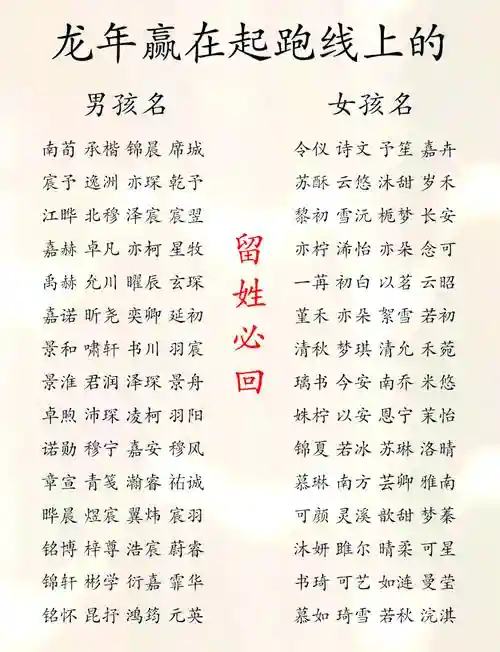 龙年赢在起跑线上的
男孩名
南荀 承楷 锦晨 席城
宸予 逸洲 亦琛 乾予
江晔 北穆 泽宸 宸翌
嘉赫 卓凡 亦柯 星牧
禹赫 允川 曜辰 玄琛
嘉诺 昕尧 奕卿 延初
景和 啸轩 书川 羽宸
景淮 君润 泽琛 景舟
卓煦 沛琛 凌柯 羽阳
诺勋 穆宁 嘉安 穆风
章宣 青笺 瀚睿 祐诚
晔晨 煜宸 翼炜 宸羽
铭博 梓尊 浩宸 蔚睿
锦轩 彬学 衍嘉 霏华
铭怀 昆抒 鸿筠 元英
留姓必回
女孩名
令仪 诗文 予笙 嘉卉
苏酥 云悠 沐甜 岁禾
黎初 雪沅 栀梦 长安
亦柠 浠怡 亦朵 念可
一苒 初白 以茗 云昭
堇禾 亦朵 絮雪 若初
清秋 梦琪 清允 禾菀
璃书 今安 南乔 米悠
姝柠 以安 恩宁 茉怡
锦夏 若冰 苏琳 洛晴
慕琳 南方 芸卿 雅南
可颜 灵溪 歆甜 梦蓁
沐妍 雎尔 晴柔 可星
书琦 可艺 如涟 曼莹
慕如 琦雪 若秋 浣淇